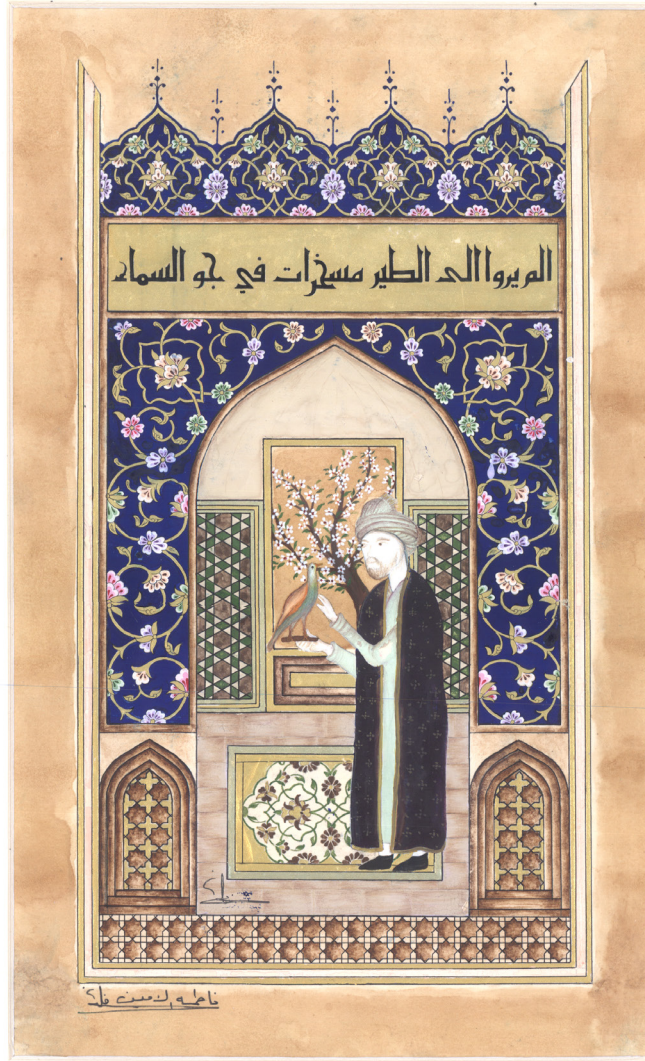 الم يروا الى الطير مسخرات في جو السماء
فاطمه